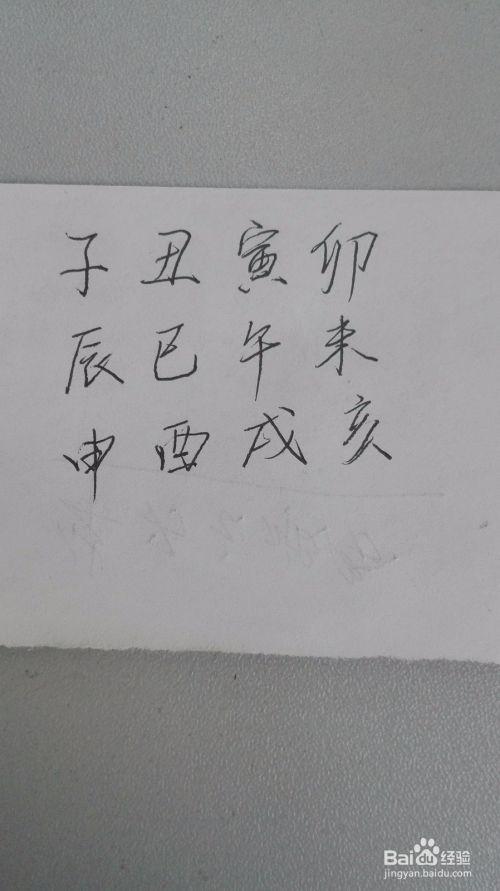 子丑寅卯
辰巳午未
申酉戌亥
Baidu经验
jingyan.baidu.com